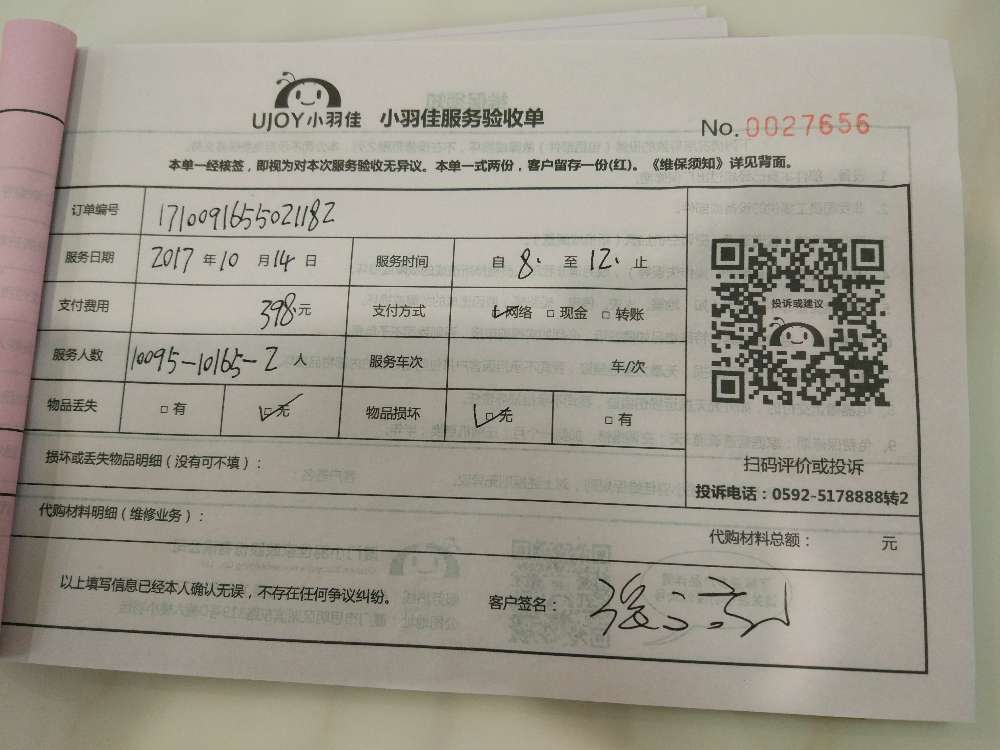 UJOY小羽佳 小羽佳服务验收单
No. 0027656
本单一经核签，即视为对本次服务验收无异议。本单一式两份，客户留存一份(红)。《维保须知》详见背面。
订单编号 1710091655021182
服务日期 2017 年 10 月 14 日 服务时间 自 8: 至 12: 止
支付费用 398.元 支付方式 网络 □ 现金 □ 转账
服务人数 10095-10165-2 人 服务车次 车/次
物品丢失 □ 有 □ 无 物品损坏 □ 无 □ 有
投诉或建议
扫码评价或投诉
投诉电话：0592-5178888转2
损坏或丢失物品明细（没有可不填）：
代购材料明细（维修业务）：
代购材料总额： 元
以上填写信息已经本人确认无误，不存在任何争议纠纷。
客户签名：